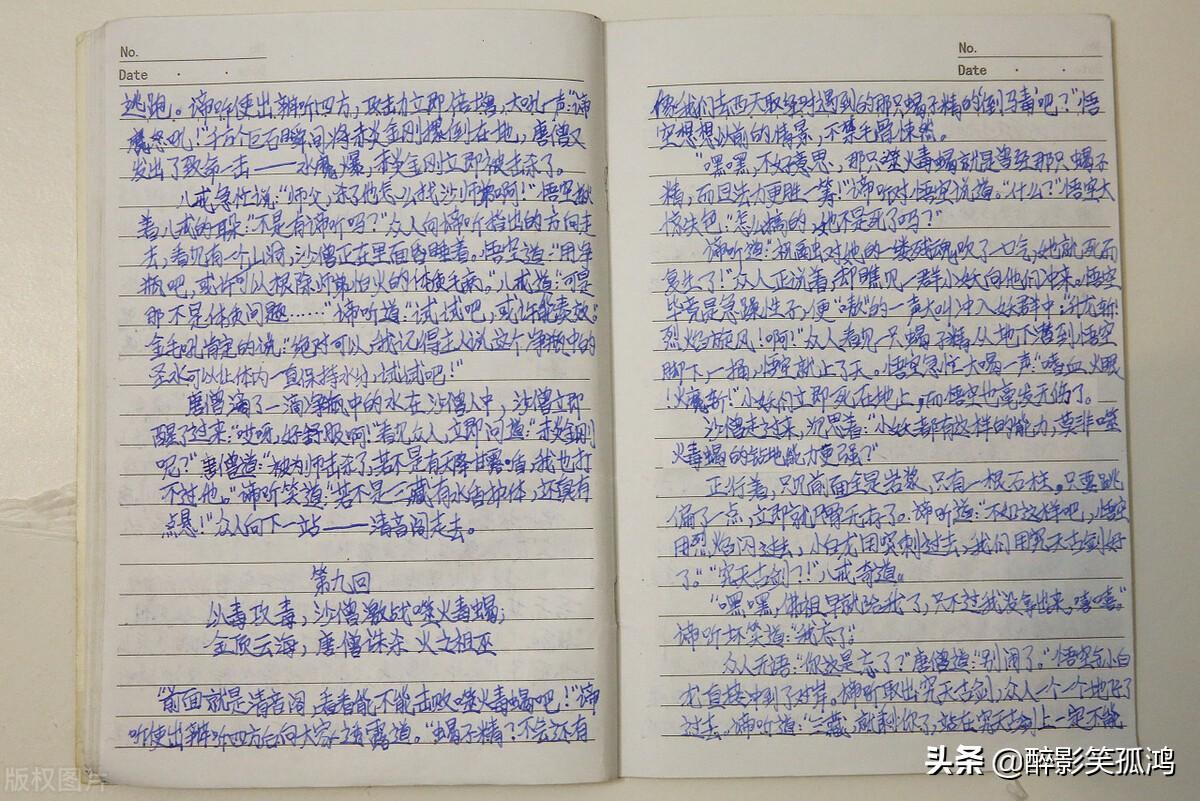 No.
Date
逃跑。谛听使出辨听四方,攻击力立即倍增,大吼一声:“谛
听怒吼!”千万个巨石瞬间将赤炎金刚撂倒在地,唐僧又
发出了致命一击——水魔爆,赤炎金刚立即被击杀了。
八戒急忙说:“师父,杀了他怎么找沙师弟啊!”悟空揪
着八戒的耳朵:“不是有谛听吗?”众人向谛听指出的方向走
去,看见有一个山洞,沙僧正在里面昏睡着。悟空道:“用净
瓶吧,或许可以根除师弟怕火的体质毛病。”八戒道:“可是
那不是体质问题……”谛听道:“试试吧,或许能凑效。”
金毛吼肯定的说:“绝对可以,我记得主人说这个净瓶中的
圣水可以让体内一直保持水分,试试吧!”
唐僧滴了一滴净瓶中的水在沙僧人中,沙僧立即
醒了过来:“哎呀,好舒服啊!”看见众人,立即问道:“赤炎金刚
呢?”唐僧道:“被为师击杀了,若不是有天降甘露盾,我也打
不过他。”谛听笑道:“若不是三藏有水的护体,还真有
点悬!”众人向下一站——清音阁走去。
第九回
以毒攻毒,沙僧激战噬火毒蝎;
金顶云海,唐僧诛杀火之祖巫
“前面就是清音阁,看看能不能击败噬火毒蝎吧!”谛
听使出辨听四方后向大家透露道。“蝎子精?不会还有
No.
Date
像我们去西天取经时遇到的那只蝎子精的倒马毒吧?”悟
空想想以前的情景,不禁毛骨悚然。
“嘿嘿,不好意思,那只噬火毒蝎就是曾经那只蝎子
精,而且法力更胜一筹!”谛听对悟空说道。“什么?”悟空大
惊失色:“怎么搞的,她不是死了吗?”
谛听道:“祖巫对他的一缕残魂吹了一口气,她就死而
复生了!”众人正说着,却瞧见一群小妖向他们冲来。悟空
毕竟是急躁性子,便“嗷”的一声大叫冲入妖群中:“
烈焰旋风!啊!”众人看见一只蝎子精从地下遭到悟空
脚下,一捅,悟空就上了天。悟空急忙大喝一声:“嗜血火眼
!火魔斩!”小妖们立即死在地上,而悟空也毫发无伤了。
沙僧走过来,沉思着:“小妖都有这样的能力,莫非噬
火毒蝎的钻地能力更强?”
正行着,只见前面全是岩浆,只有一根石柱。只要跳
偏了一点,立即就尸骨无存了。谛听道:“不如这样吧,悟空
用烈焰闪过去,小白龙用突刺过去,我们用究天古剑好
了。”“究天古剑?!”八戒奇道。
“嘿嘿,佛祖早就给我了,只不过我没拿出来,嘻嘻。”
谛听坏笑道:“我忘了。”
众人无语:“你这是忘了?”唐僧道:“别闹了。”悟空与小白
龙直接冲到了对岸。谛听取出究天古剑,众人一个一个地
过去。谛听道:“三藏,就剩你了,站在究天古剑上一定不能
版权图片
头条 @醉影笑孤鸿